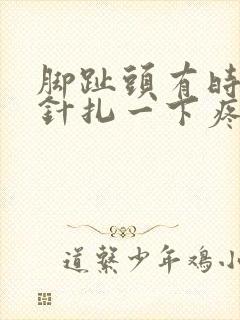 脚趾頭有時
針扎一下疼
道繫少年鸡小